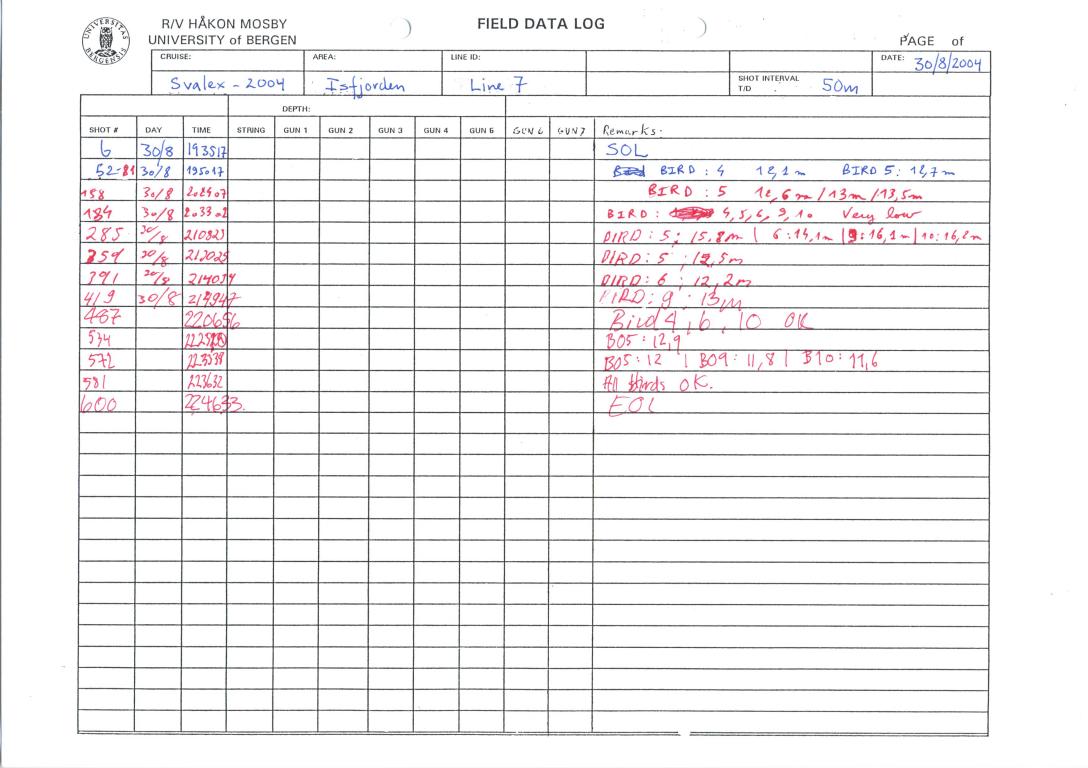 R/V HÅKON MOSBY
UNIVERSITY of BERGEN
UNIVERSITAS BERGENSIS
FIELD DATA LOG
PAGE of
CRUISE: AREA: LINE ID: DATE: 30/8/2004
Svalex - 2004 Isfjorden Line 7 SHOT INTERVAL T/D 50m
DEPTH:
SHOT # DAY TIME STRING GUN 1 GUN 2 GUN 3 GUN 4 GUN 5 GUN 6 GUN 7 Remarks:
6 30/8 193517 SOL
52-81 30/8 195017 BIRD : 4 12,1 m BIRD 5: 12,7 m
158 30/8 BIRD : 5 12,6 m / 13m / 13,5m
184 30/8 203302 BIRD : 4, 5, 6, 9, 10 Very low
285 30/8 BIRD : 5: 15,8m | 6:14,1m | 9:16,1m | 10:16,2m
359 30/8 BIRD: 5 ; 12,5m
391 30/8 BIRD: 6 ; 12,2m
419 30/8 214947 BIRD: 9 : 13m
487 220656 Bird 4, 6, 10 OK
534 B05:12,9
572 B05:12 | B09:11,8 | B10:11,6
581 223632 All birds OK.
600 224633. EOL